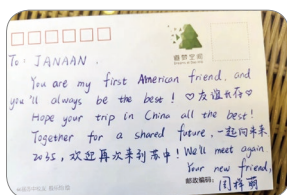 To: JANAAN.
You are my first American friend, and
you'll always be the best! ♡友谊长存♡
Hope your trip in China all the best!
Together for a shared future, 一起向未来
2035, 欢迎再次来到高中! We'll meet again
Your new friend,
邮政编码: